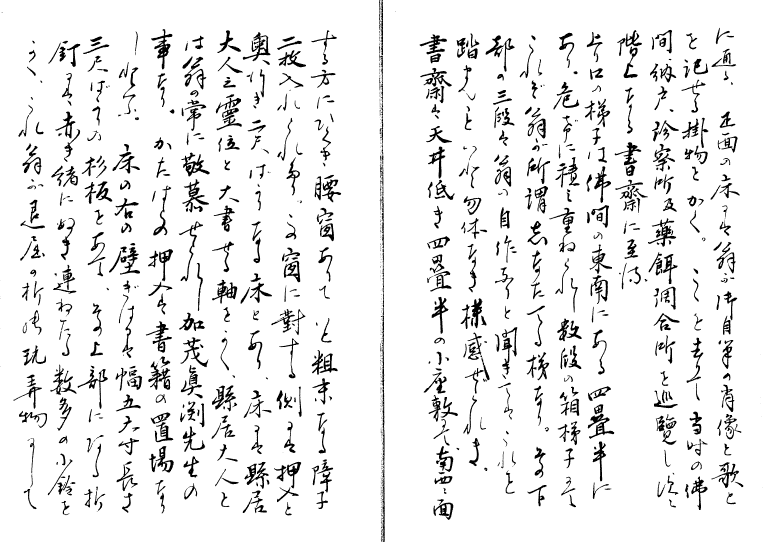 に直る、正面の床には翁が御自筆の肖像と歌と
を記せる掛物をかく。こゝを去りて当時の佛
間納戸、診察所及薬餌調合所を巡覽し、次に
階上なる書齋に至る。
上り口の梯子は佛間の東南にある四疊半に
あり。危なげに積重ねられし数段の箱梯子にて
これぞ翁が所謂志なたてる梯なり。その下
部の三段は翁の自作なりと聞きては、これを
踏む もいと勿体なき様感ぜられき。
書齋は天井低き四疊半の小座敷にて、南西二面
する方にひくき腰窗ありていと粗末なる障子
二枚入れられあり。この窗に對する側には押入と
奥行き二尺ばかりなる床とあり。床には縣居
大人之靈位と大書せる軸をかく、縣居大人と
は翁の常に敬慕せられし加茂眞渕先生の
事なり。かたはらの押入は書籍の置場なり
しといふ。床の右の壁ぎはには幅五六寸長さ
三尺ばかりの杉板をあて、その上部になる折
釘には赤き緒にぬき連ねたる数多の小鈴を
かく、これ翁が退屈の折の玩弄物にして